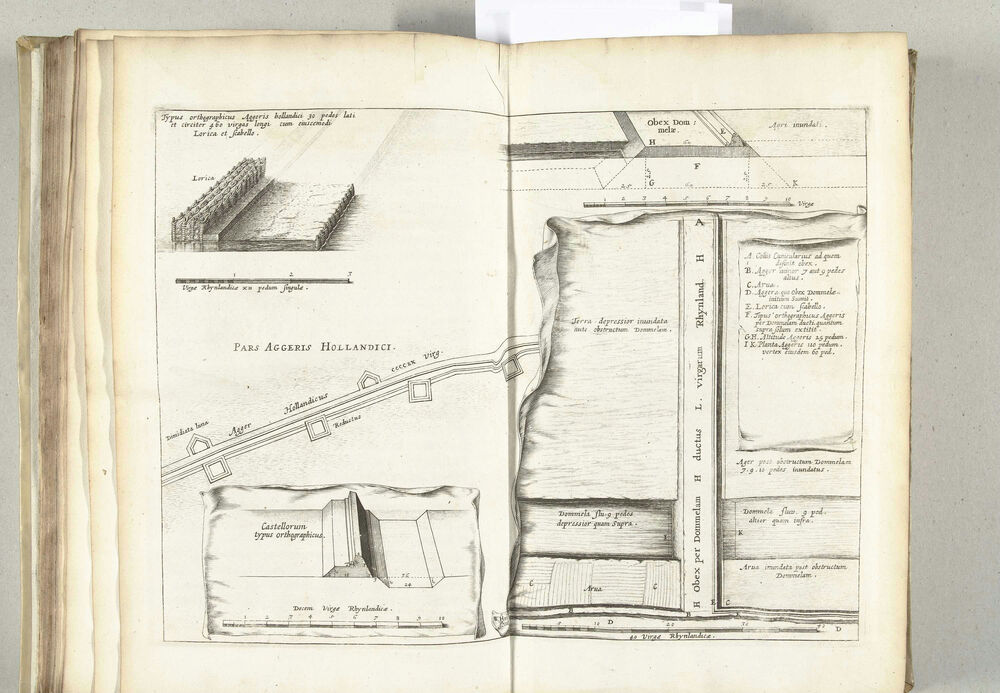 Typus orthographicus Aggeris hollandici 30 pedes lati
et circiter 460 virgas longi cum eiuscemodi
Lorica et scabello.
Lorica
1 2 3
Virgæ Rhynlandicæ XII pedum singulæ.
PARS AGGERIS HOLLANDICI.
Dimidiata luna
Agger
Hollandicus
ccccxx Virg.
Reductus
Castellorum
typus orthographicus.
24
Decem Virgæ Rhynlandicæ.
1 2 3 4 5 6 7 8 9 10
Obex Dom:
melæ.
E
Agri inundati.
H
F
G
25
K
1 2 3 4 5 6 7 8 9 10 Virgæ
A
Terra depressior inundata
ante obstructum Dommelam.
H Obex per Dommelam H ductus L. virgarum Rhynland. H
A. Collis Cunicularius ad quem
desinit obex.
B. Agger minor 7 aut 9 pedes
altus.
C. Arua.
D. Aggera quo Obex Dommelæ
initium Sumit.
E. Lorica cum scabello.
F. Typus orthographicus Aggeris
per Dommelam ducti quantum
supra solum extitit.
G.H. Altitudo Aggeris 25 pedum.
I K. Planta Aggeris 110 pedum.
vertex eiusdem 60 ped.
Ager post obstructum Dommelam
7. 9. 10 pedes inundatus.
Dommela flu. 9 pedes
depressior quam Supra.
I
Dommela fluv. 9 ped.
altior quam infra.
K
C Arua C
Arua inundata post obstructum
Dommelam.
B
E
C
D
10 20 30 40 D
40 Virgæ Rhynlandicæ.